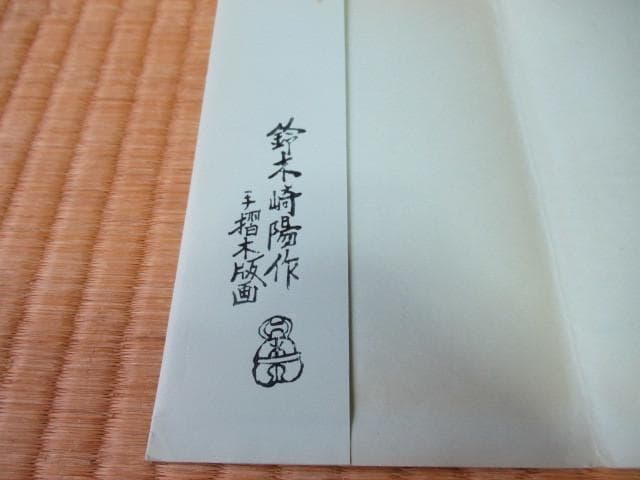 鈴木崎陽作
手摺木版画